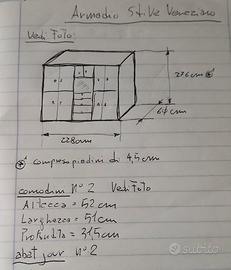 Armadio Stile Veneziano
Vedi Foto
226 cm *
64 cm
228cm
* compreso piedini di 4,5 cm
comodini n° 2 Vedi Foto
Altezza = 52 cm
Larghezza = 51 cm
Profondità = 31,5 cm
abat jour n° 2
subito